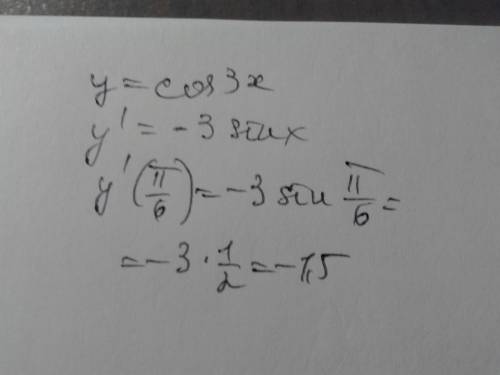 y = cos3x
y' = -3 sinx
y'(π/6) = -3 sin π/6 =
= -3 · 1/2 = -1,5